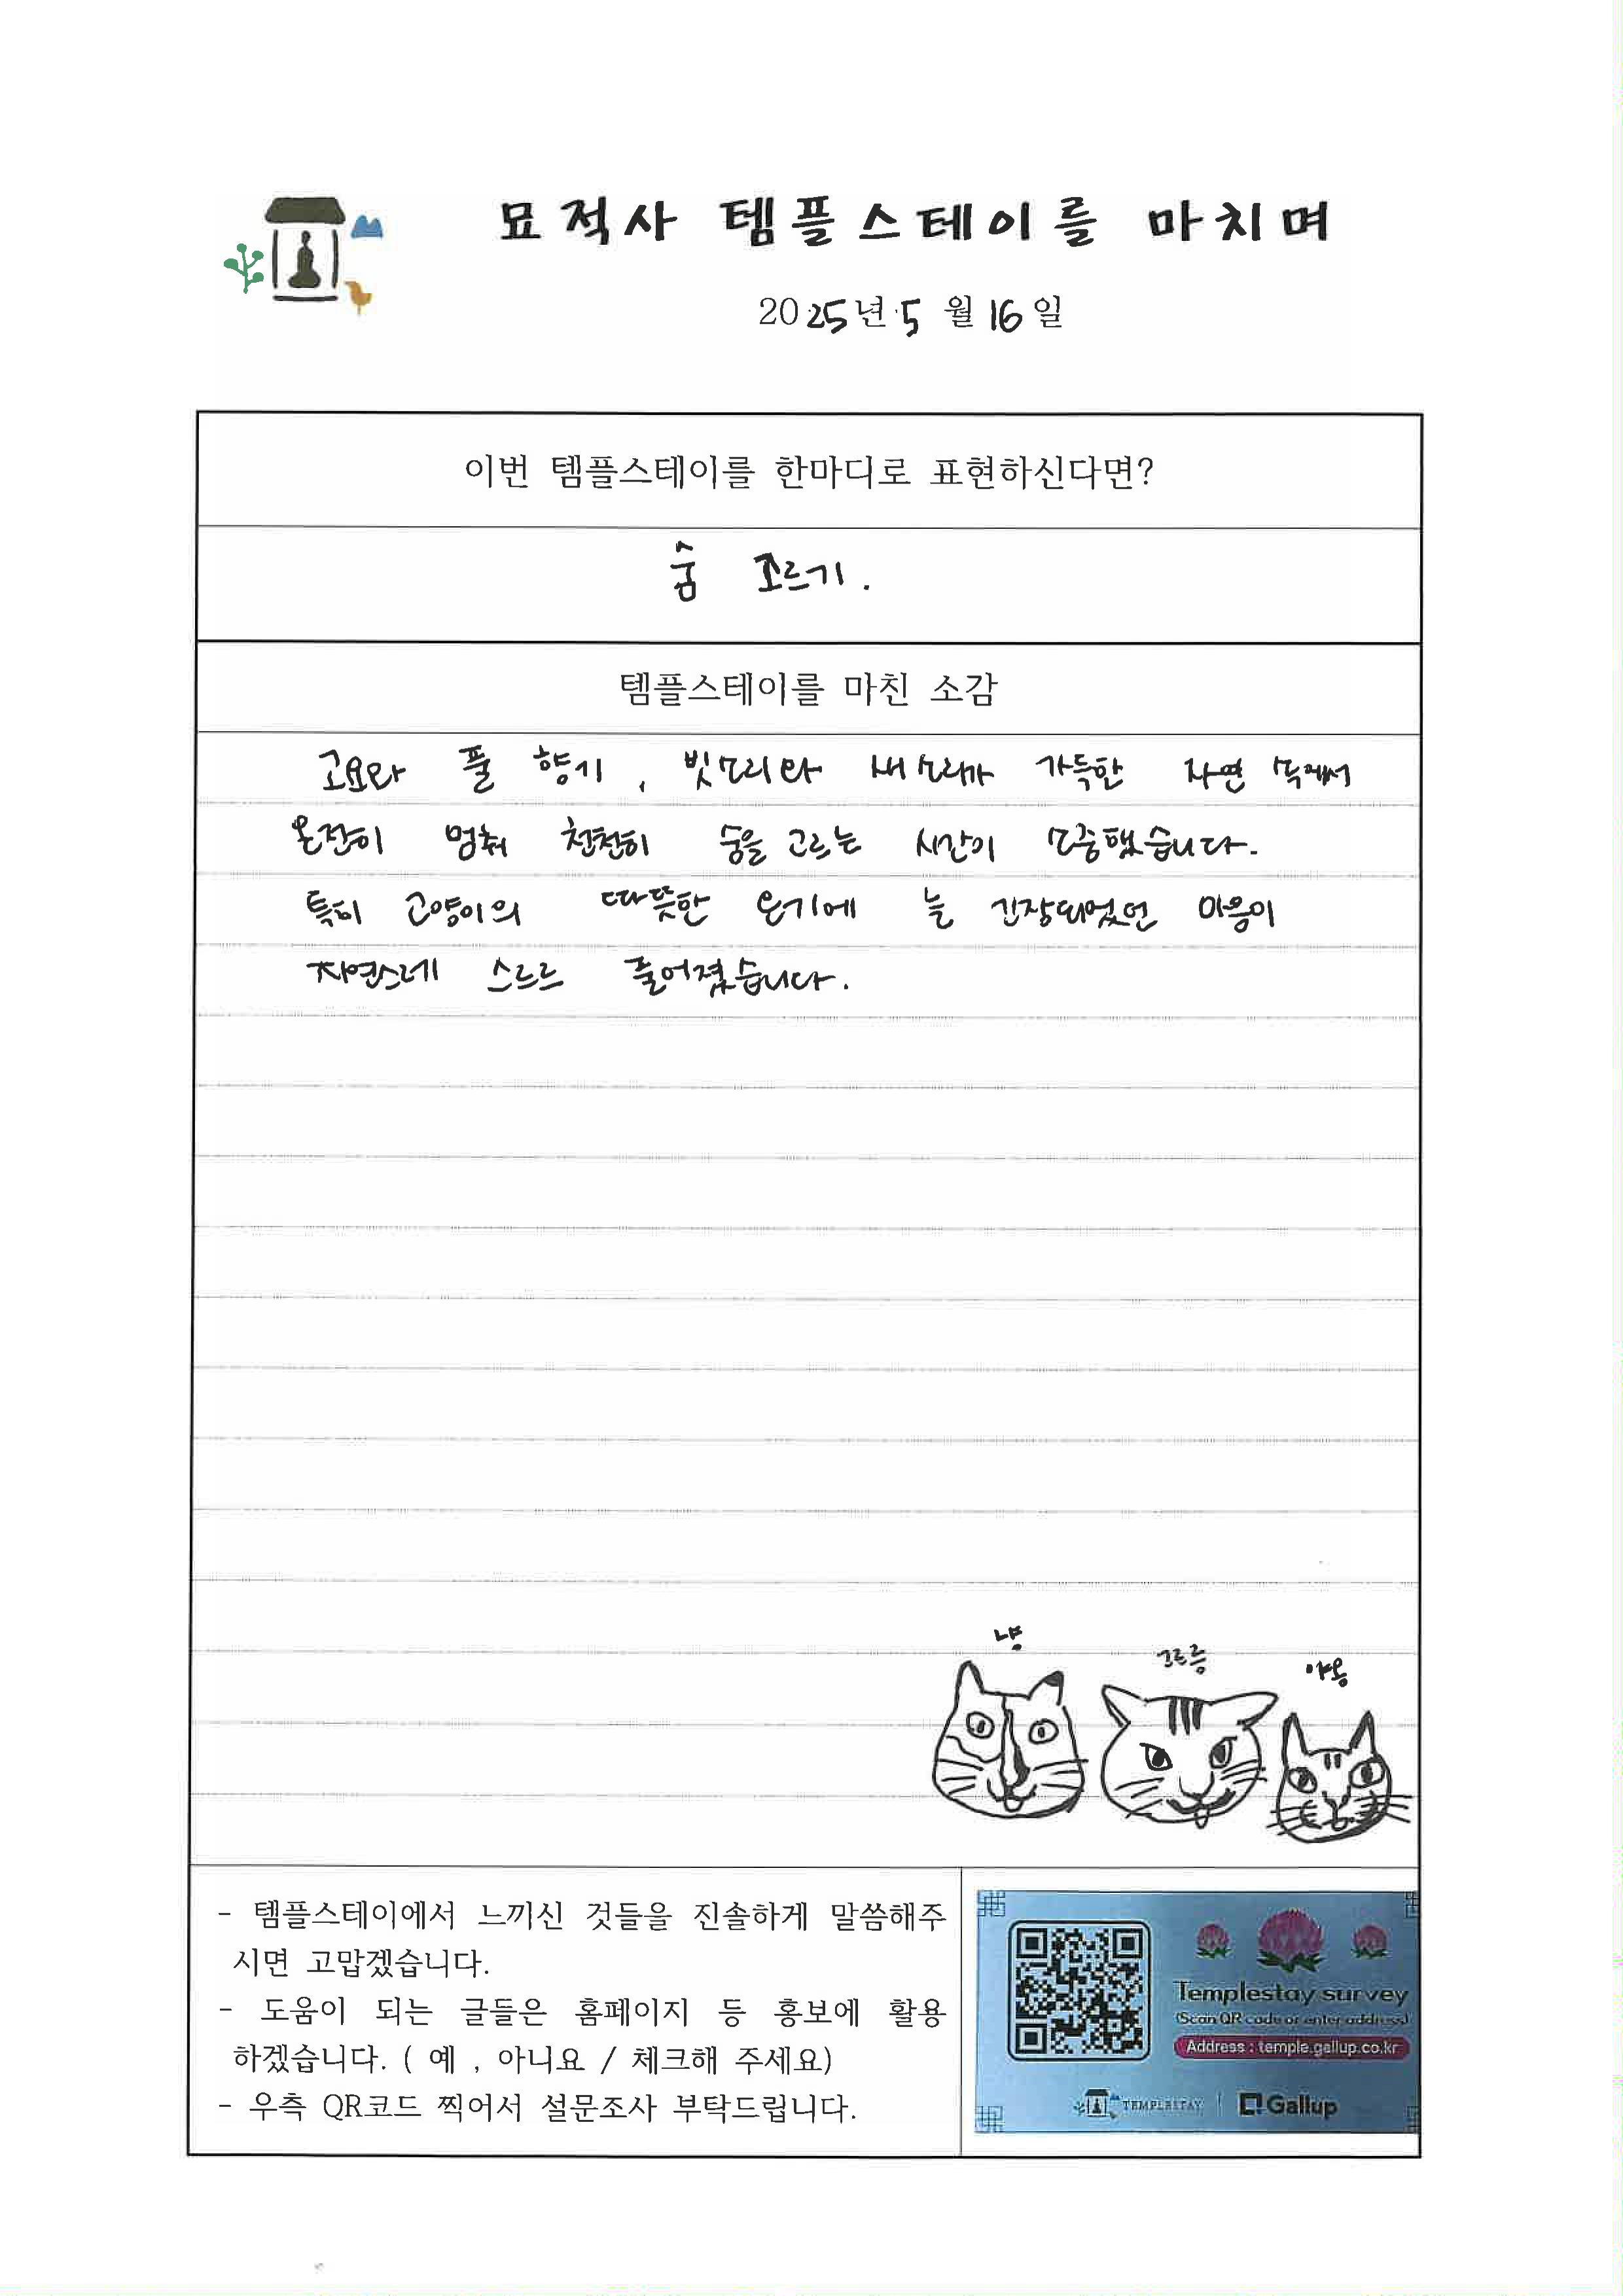 묘적사 템플스테이를 마치며
2025년 5월 16일
이번 템플스테이를 한마디로 표현하신다면?
숨 고르기.
템플스테이를 마친 소감
고요와 풀 향기, 빗소리와 새소리가 가득한 자연 속에서
온전히 멈춰 천천히 숨을 고르는 시간이 소중했습니다.
특히 고양이의 따뜻한 온기에 늘 긴장되었던 마음이
자연스레 스르르 풀어졌습니다.
냥
그르릉
야옹
- 템플스테이에서 느끼신 것들을 진솔하게 말씀해주
시면 고맙겠습니다.
- 도움이 되는 글들은 홈페이지 등 홍보에 활용
하겠습니다. ( 예 , 아니요 / 체크해 주세요)
- 우측 QR코드 찍어서 설문조사 부탁드립니다.
Templestay survey
(Scan QR code or enter address)
Address : temple.gallup.co.kr
TEMPLESTAY | Gallup